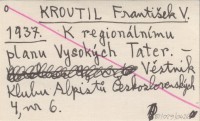 KROUTIL František V.
1937. K regionálnímu
plánu Vysokých Tater. –
Věstník
Klubu Alpistů Československých
4, nr 6.